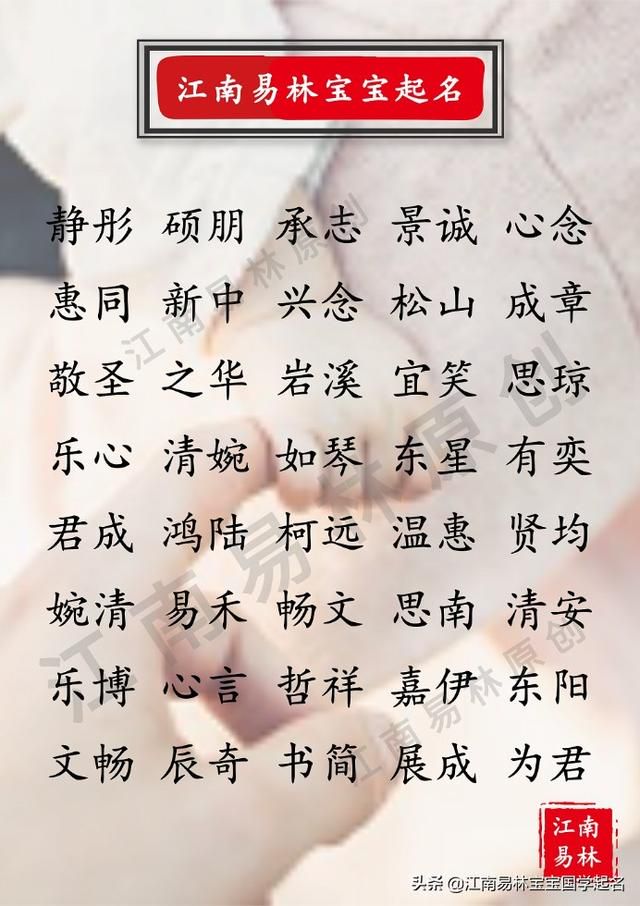 江南易林宝宝起名
静彤 硕朋 承志 景诚 心念
惠同 新中 兴念 松山 成章
敬圣 之华 岩溪 宜笑 思琼
乐心 清婉 如琴 东星 有奕
君成 鸿陆 柯远 温惠 贤均
婉清 易禾 畅文 思南 清安
乐博 心言 哲祥 嘉伊 东阳
文畅 辰奇 书简 展成 为君
江南易林原创
江南易林原创
江南易林原创
江南
易林
头条 @江南易林宝宝国学起名